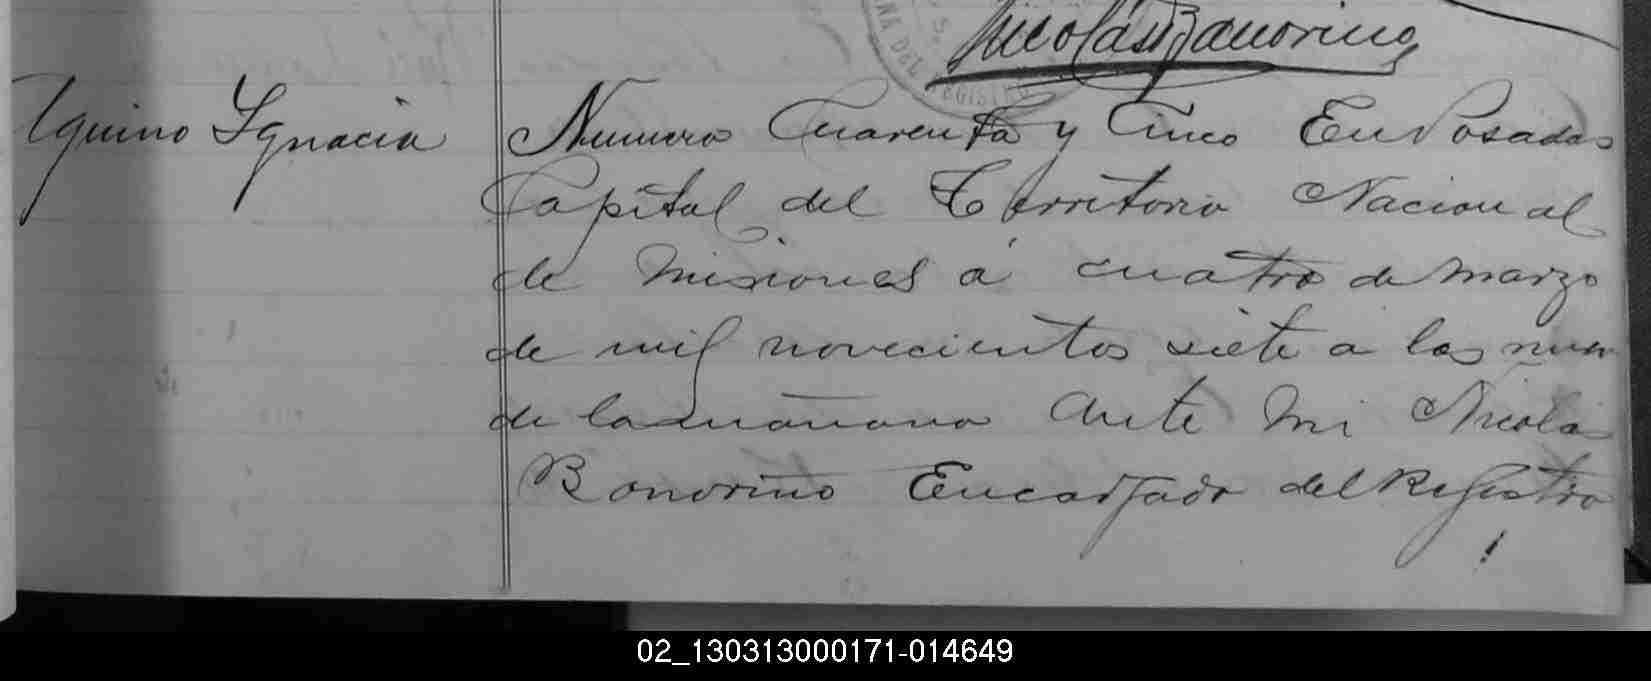 Nicolás Bonorino
Aquino Ignacia
Numero Cuarenta y Cinco En Posadas
Capital del Territorio Nacional
de Misiones á cuatro de Marzo
de mil novecientos siete a las nueve
de la mañana Ante Mi Nicolás
Bonorino Encargado del Registro
02_130313000171-014649